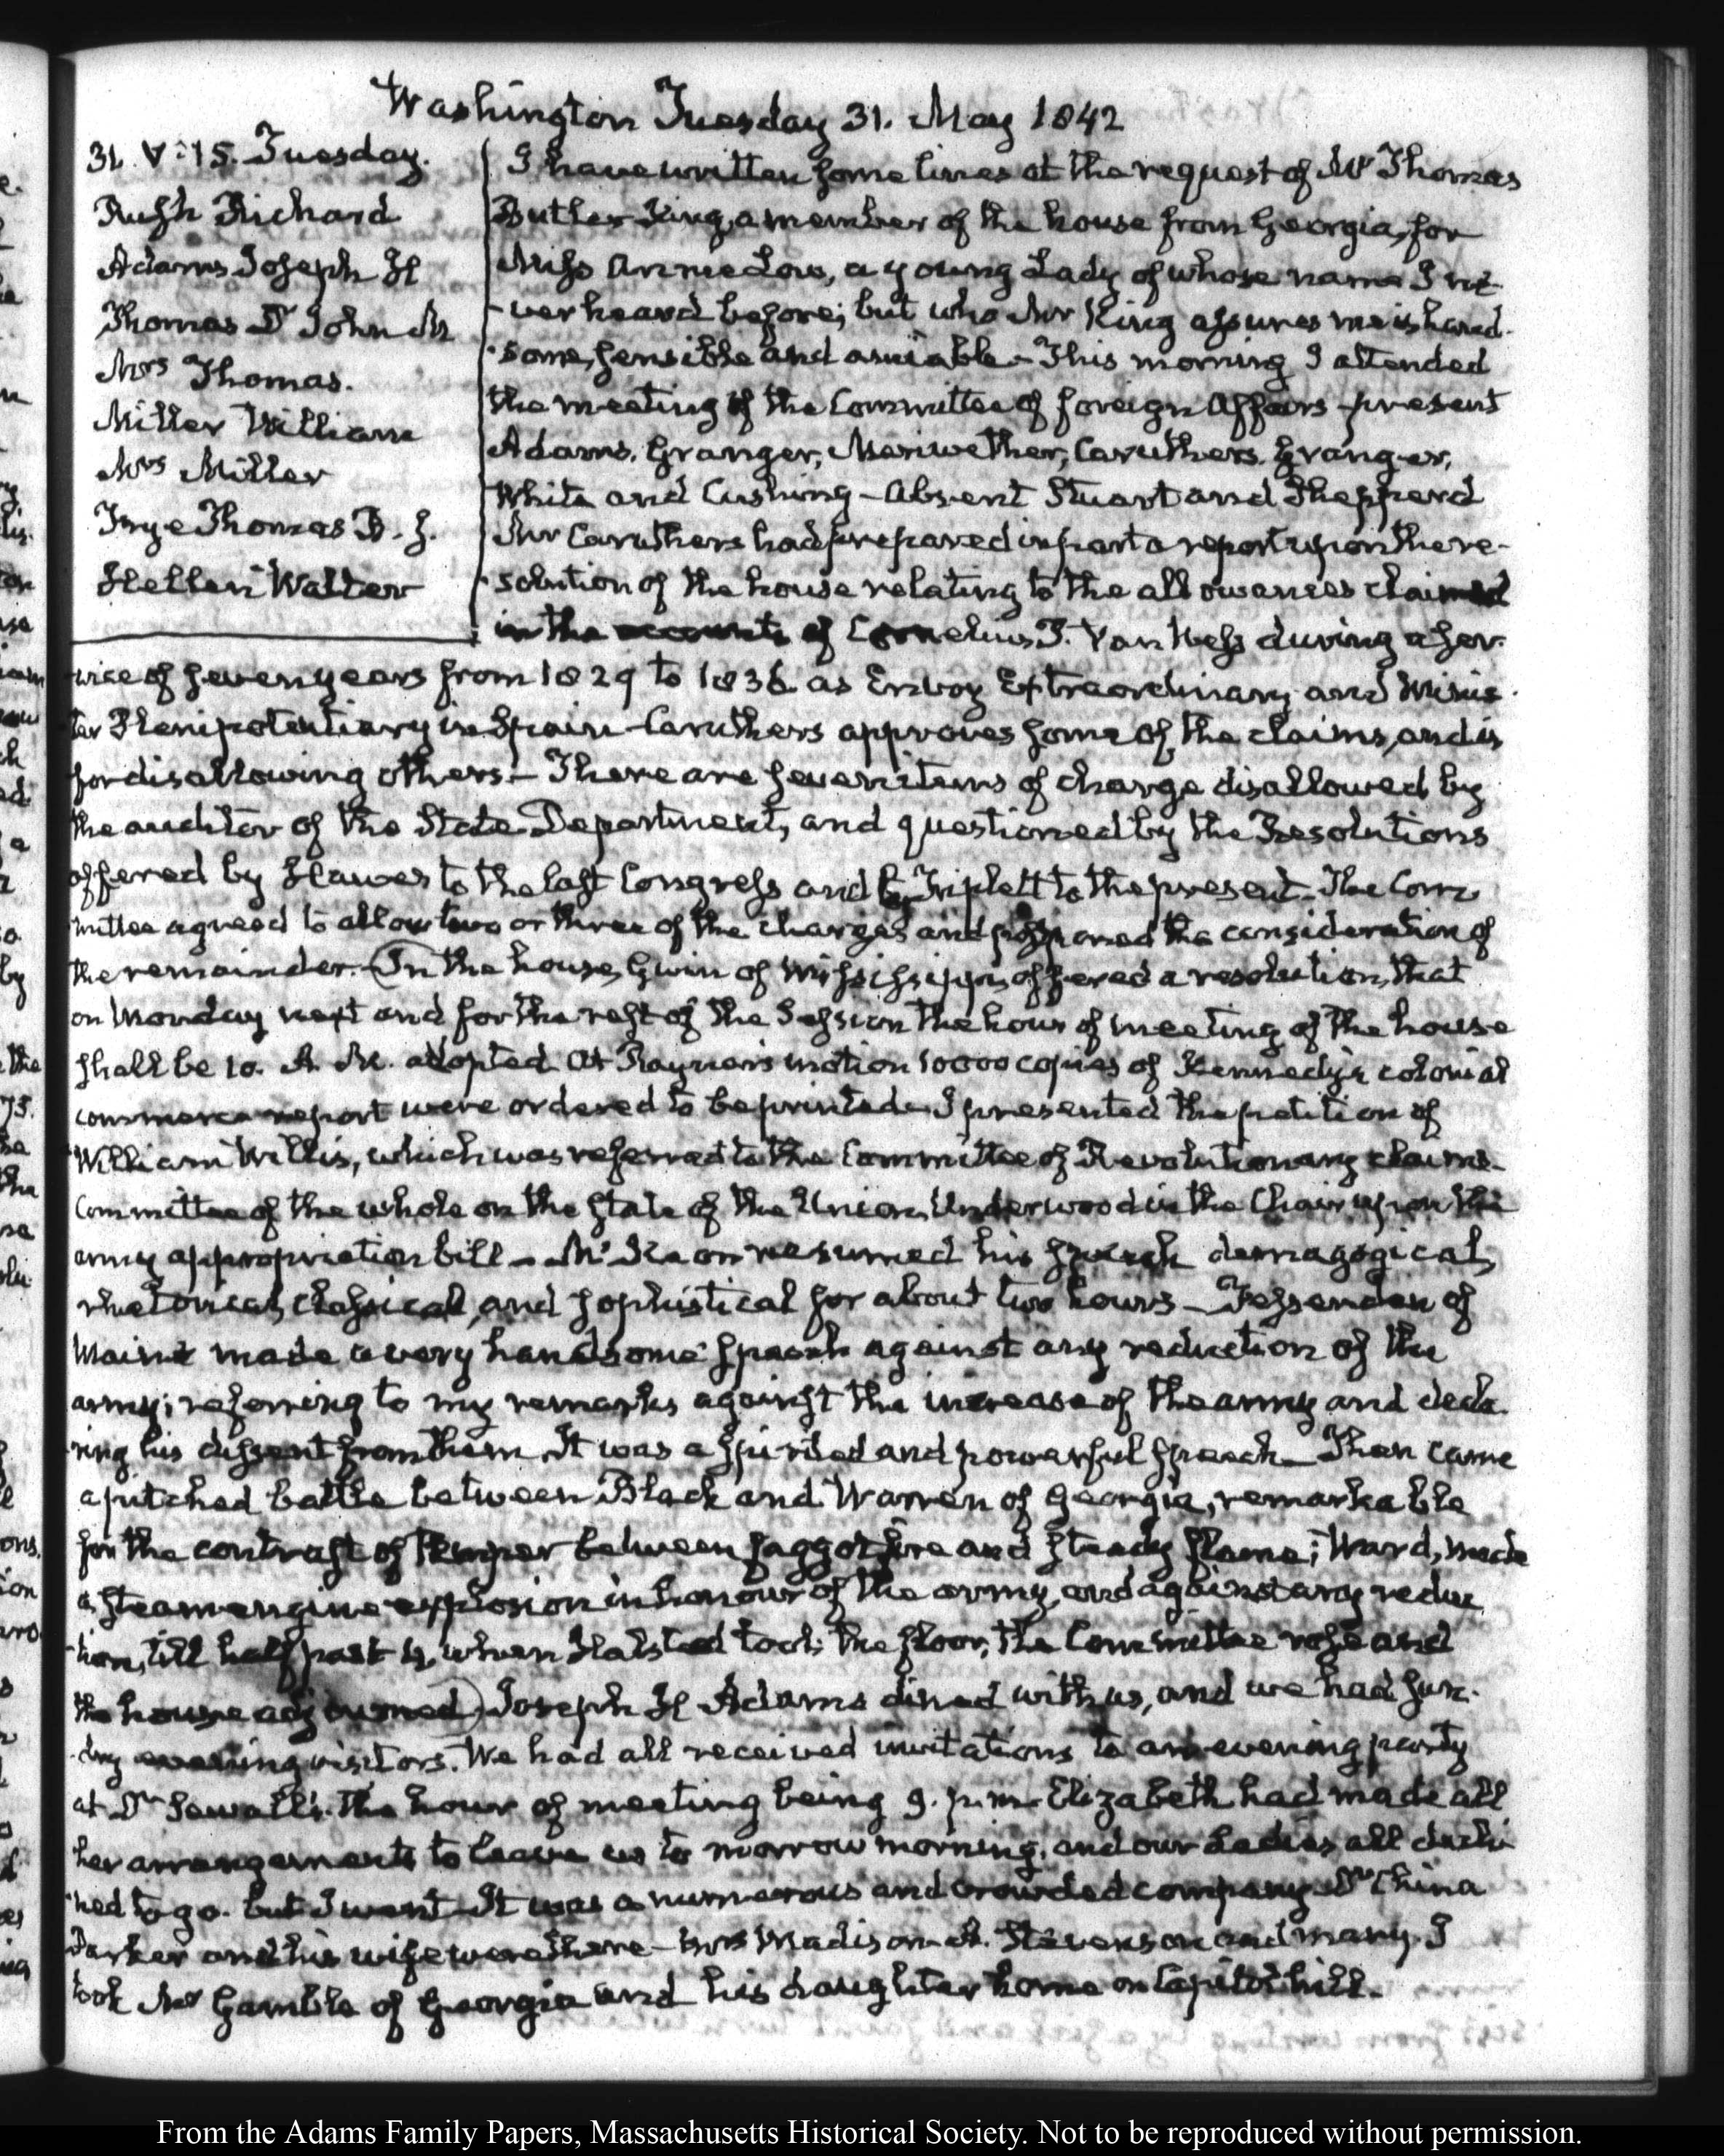 Washington Tuesday 31. May 1842
31. V:15. Tuesday.
Rush Richard
Adams Joseph H
Thomas Dr John M
Mrs Thomas.
Miller William
Mrs Miller
Frye Thomas B. J.
Hellen Walter
I have written some lines at the request of Mr Thomas
Butler King, a member of the house from Georgia, for
Miss Annie Low, a young Lady of whose name I ne-
-ver heard before; but who Mr King assures me is hand-
-some, sensible and amiable - This morning I attended
the meeting of the Committee of foreign Affairs - present
Adams. Granger, Meriwether, Caruthers. Granger,
White and Cushing - Absent Stuart and Shepperd
Mr Caruthers had prepared in part a report upon the re-
-solution of the house relating to the allowances claimed
in the accounts of Cornelius P. Van Ness during a ser-
-vice of seven years from 1829 to 1836 as Envoy Extraordinary and Minis-
ter Plenipotentiary in Spain - Caruthers approves some of the claims, and is
for disallowing others - There are seven items of charge disallowed by
the auditor of the State Department, and questioned by the Resolutions
offered by Hawes to the last Congress and by Triplett to the present - The Com-
mittee agreed to allow two or three of the charges and postponed the consideration of
the remainder. - (In the house, Gwin of Mississippi, offered a resolution, that
on Monday next and for the rest of the Session the hour of meeting of the house
shall be 10. A. M. adopted. At Rayner's motion 10000 copies of Kennedy's colonial
commerce report were ordered to be printed. I presented the petition of
William Willis, which was referred to the Committee of Revolutionary claims.
Committee of the whole on the state of the Union, Underwood in the Chair upon the
army appropriation bill - McKeon resumed his speech demagogical,
rhetorical, classical, and sophistical for about two hours - Fessenden of
Maine made a very handsome speech against any reduction of the
army; referring to my remarks against the increase of the army and decla-
-ring his dissent from them. It was a spirited and powerful speech - Then came
a pitched battle between Black and Warren of Georgia, remarkable
for the contrast of temper between faggot fire and steady flame; Ward, made
a steam engine explosion in honour of the army, and against any reduc
-tion, till half past 4, when Halsted took the floor, the Committee rose and
the house adjourned) Joseph H Adams dined with us, and we had sun-
-dry evening visitors. We had all received invitations to an evening party
at Dr Sewall's. The hour of meeting being 9. p.m. Elizabeth had made all
her arrangements to leave us to morrow morning, and our Ladies all decli-
-ned to go. but I went - It was a numerous and crowded company - Dr China
Parker and his wife were there - Mrs Madison - A. Stevenson and many. I
took Mr Gamble of Georgia and his daughter home on Capitol hill.
From the Adams Family Papers, Massachusetts Historical Society. Not to be reproduced without permission.